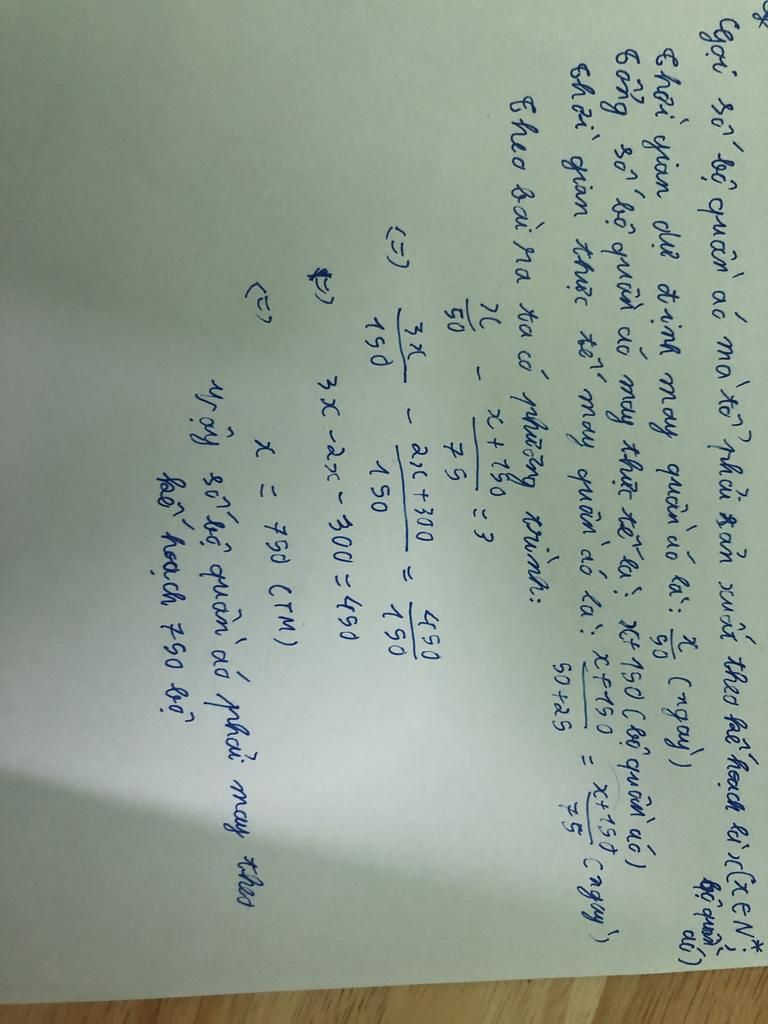 Gọi số bộ quần áo mà tổ phải sản xuất theo kế hoạch là x (x ∈ N*; bộ quần áo)
Thời gian dự định may quần áo là: x/50 (ngày)
Tổng số bộ quần áo may thực tế là: x+150 (bộ quần áo)
Thời gian thực tế may quần áo là: x+150/50+25 = x+150/75 (ngày)
Theo bài ra ta có phương trình:
x/50 - x+150/75 = 3
(=) 3x/150 - 2x+300/150 = 450/150
(=) 3x - 2x - 300 = 450
(=) x = 750 (TM)
Vậy số bộ quần áo phải may theo
kế hoạch 750 bộ